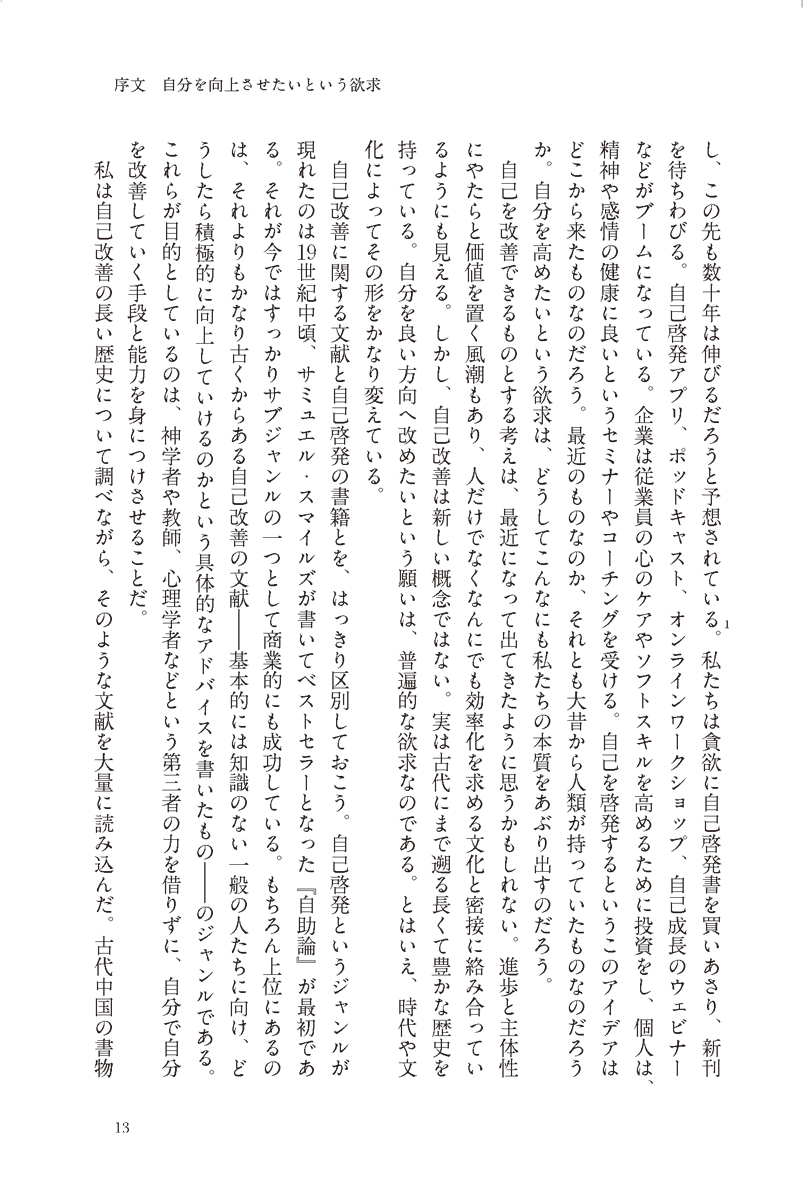 序文　自分を向上させたいという欲求
し、この先も数十年は伸びるだろうと予想されている。1 私たちは貪欲に自己啓発書を買いあさり、新刊
を待ちわびる。自己啓発アプリ、ポッドキャスト、オンラインワークショップ、自己成長のウェビナー
などがブームになっている。企業は従業員の心のケアやソフトスキルを高めるために投資をし、個人は、
精神や感情の健康に良いというセミナーやコーチングを受ける。自己を啓発するというこのアイデアは
どこから来たものなのだろう。最近のものなのか、それとも大昔から人類が持っていたものなのだろう
か。自分を高めたいという欲求は、どうしてこんなにも私たちの本質をあぶり出すのだろう。
　自己を改善できるものとする考えは、最近になって出てきたように思うかもしれない。進歩と主体性
にやたらと価値を置く風潮もあり、人だけでなくなんにでも効率化を求める文化と密接に絡み合ってい
るようにも見える。しかし、自己改善は新しい概念ではない。実は古代にまで遡る長くて豊かな歴史を
持っている。自分を良い方向へ改めたいという願いは、普遍的な欲求なのである。とはいえ、時代や文
化によってその形をかなり変えている。
　自己改善に関する文献と自己啓発の書籍とを、はっきり区別しておこう。自己啓発というジャンルが
現れたのは19世紀中頃、サミュエル・スマイルズが書いてベストセラーとなった『自助論』が最初であ
る。それが今ではすっかりサブジャンルの一つとして商業的にも成功している。もちろん上位にあるの
は、それよりもかなり古くからある自己改善の文献――基本的には知識のない一般の人たちに向け、ど
うしたら積極的に向上していけるのかという具体的なアドバイスを書いたもの――のジャンルである。
これらが目的としているのは、神学者や教師、心理学者などという第三者の力を借りずに、自分で自分
を改善していく手段と能力を身につけさせることだ。
　私は自己改善の長い歴史について調べながら、そのような文献を大量に読み込んだ。古代中国の書物
13